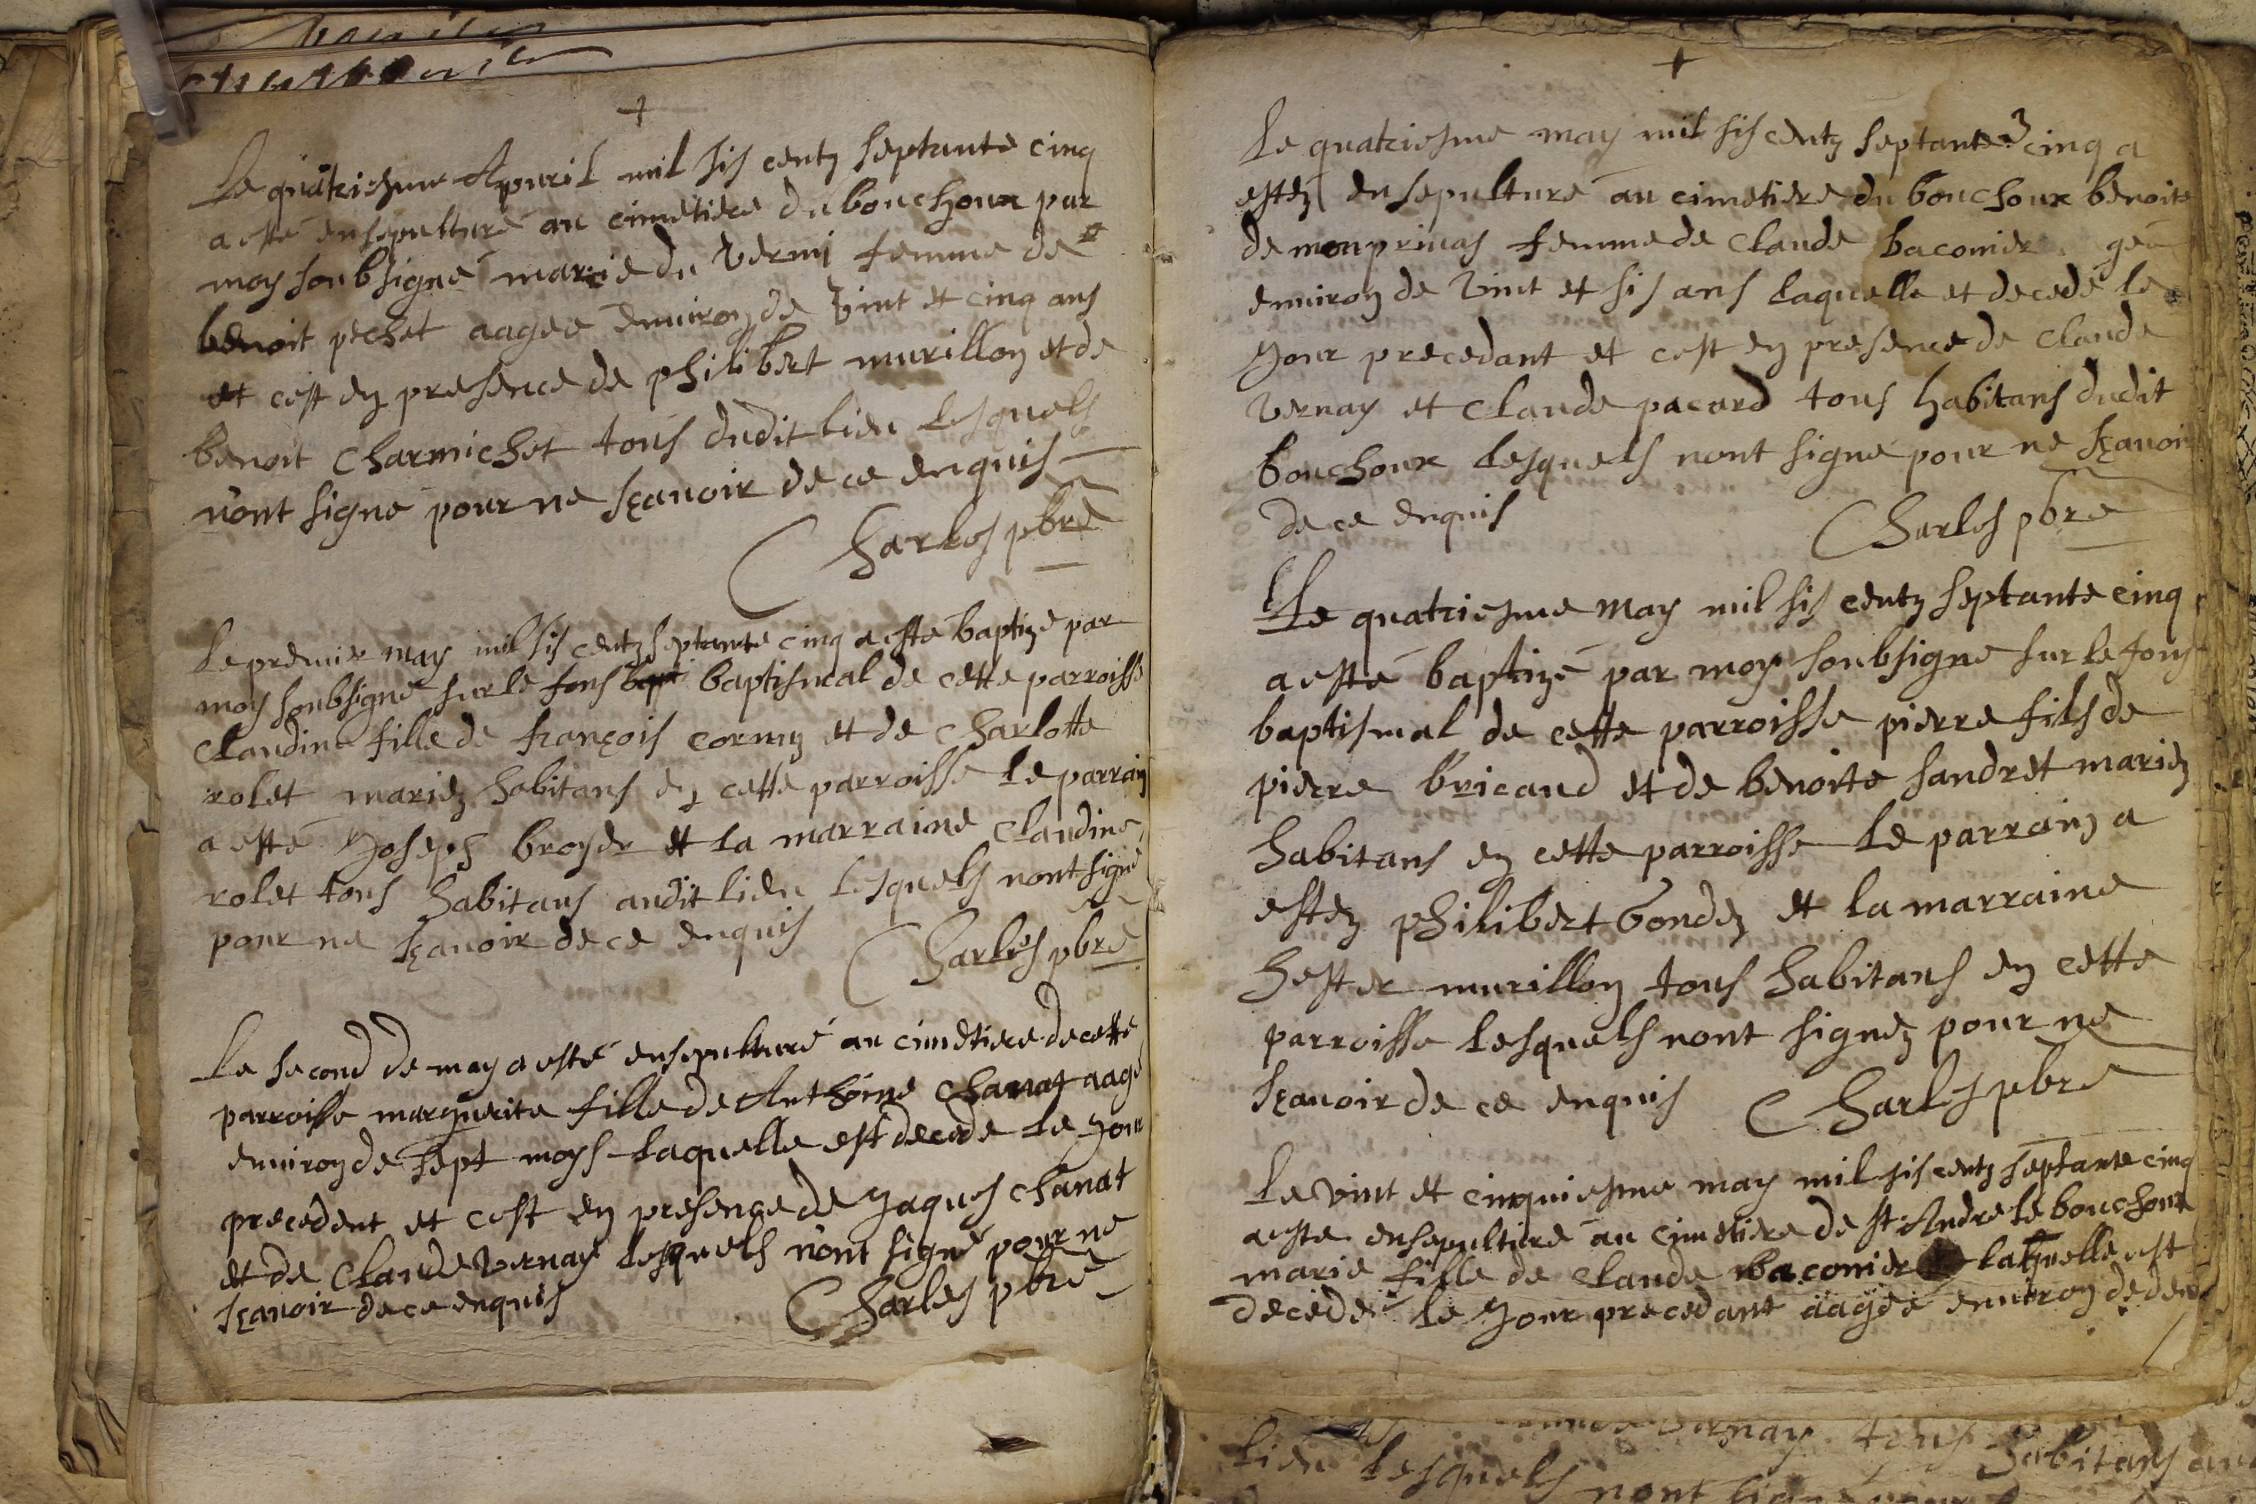 +
Le quatriesme Apvril mil sis centz septante cinq
a esté ensepulturé au cimetiere du bouchoux par
moy soubsigné marie du vermi femme de
benoit pechet aagee enuiron de vint et cinq ans
et cest en presence de philibert murillon et de
benoit Charmichet tous dudit lieu lesquels
n'ont signé pour ne sçauoir de ce enquis
Charles pbre
Le premier may mil sis centz septante cinq a esté baptizé par
moy soubsigné sur le fons baptismal de cette parroisse
Claudine fille de françois cormy et de Charlotte
rolet mariez habitans en cette parroisse le parrain
a esté Joseph broyer et la marraine Claudine
rolet tous habitans audit lieu lesquels nont signé
pour ne sçauoir de ce enquis
Charles pbre
Le second de may a esté ensepulturé au cimetiere de cette
parroisse marguerite fille de Anthoine Chanat aagé
enuiron de sept moys laquelle est decede le jour
precedent et cest en presence de Jaques Chanat
et de Claude vernay lesquels n'ont signé pour ne
sçauoir de ce enquis
Charles pbre
+
Le quatriesme may mil sis centz septante cinq a
estez ensepulturé au cimetiere du bouchoux benoite
de monpriuas femme de Claude baconier gée
enuiron de vint et sis ans laquelle et decedé le
Jour precedant et cest en presence de Claude
vernay et Claude pacard tous habitans dudit
bouchoux lesquels nont signé pour ne sçauoir
de ce enquis
Charles pbre
Le quatriesme may mil sis centz septante cinq
a esté baptizé par moy soubsigné sur le fons
baptismal de cette parroisse pierre fils de
pierre bricaud et de benoite sandret mariez
habitans en cette parroisse le parrain a
estez philibert Gondez et la marraine
hester murillon tous habitans en cette
parroisse lesquels nont signez pour ne
sçauoir de ce enquis
Charles pbre
Le vint et cinquiesme may mil sis centz septante cinq
a este ensepulturé au cimetiere de st Andre le bouchoux
marie fille de Claude baconier laquelle est
decedeé le Jour precedant aagée enuiron de deux
vernay tous habitans au
lieu lesquels nont signé